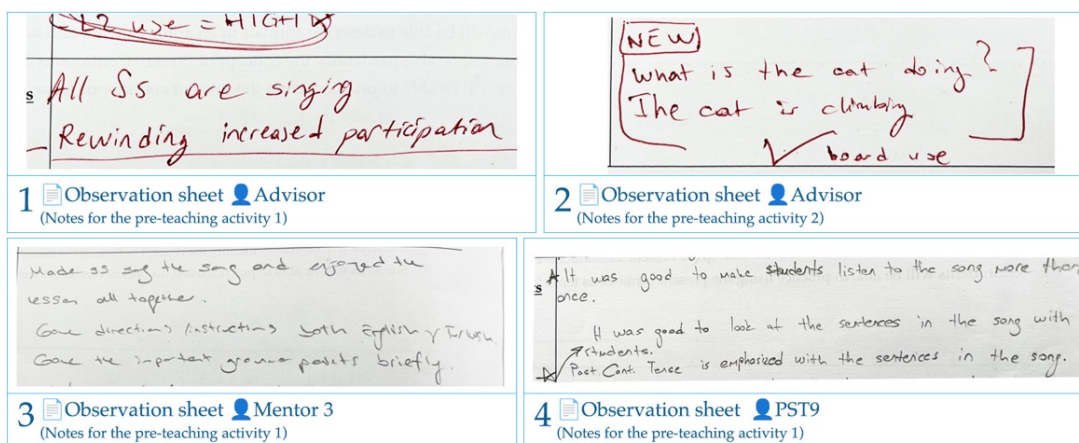 =L2 use = HIGH
All Ss are singing
s
Rewinding increased participation
1 Observation sheet Advisor
(Notes for the pre-teaching activity 1)
NEW
What is the cat doing?
The cat is climbing
board use
2 Observation sheet Advisor
(Notes for the pre-teaching activity 2)
Made ss sing the song and enjoyed the
lesson all together.
Gave directions/instructions both English Turkish.
Gave the important grammar points briefly.
3 Observation sheet Mentor 3
(Notes for the pre-teaching activity 1)
It was good to make students listen to the song more than
s
once.
It was good to look at the sentences in the song with
students.
Past Cont. Tence is emphasized with the sentences in the song.
4 Observation sheet PST9
(Notes for the pre-teaching activity 1)